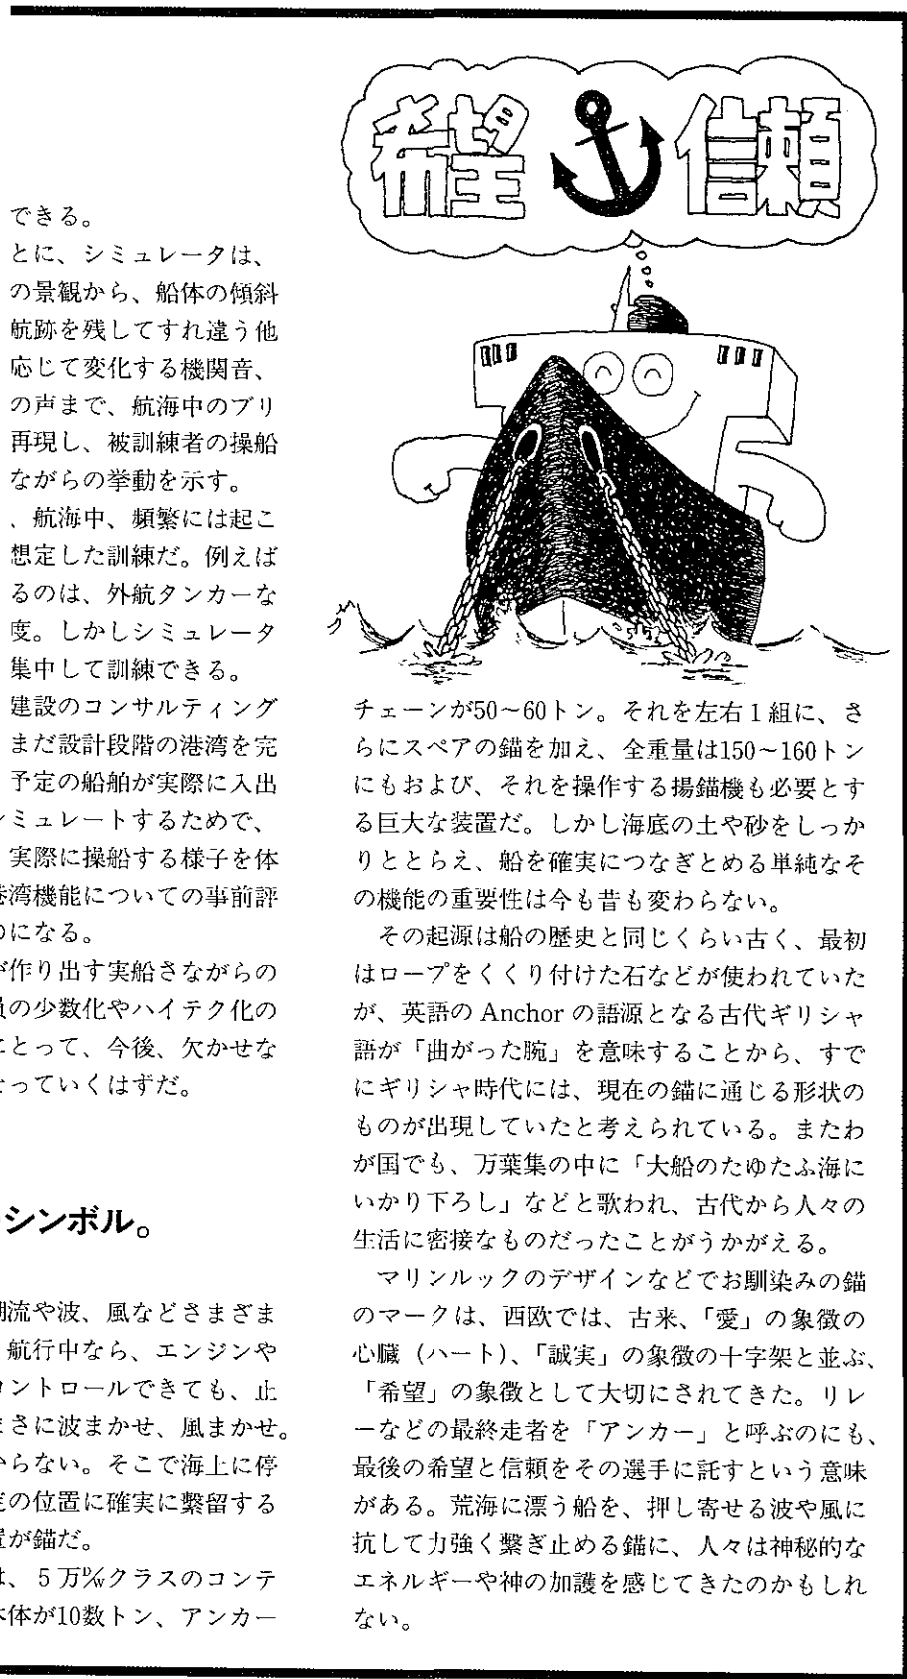 希望 信頼
できる。
とに、シミュレータは、
の景観から、船体の傾斜
航跡を残してすれ違う他
応じて変化する機関音、
の声まで、航海中のブリ
再現し、被訓練者の操船
ながらの挙動を示す。
、航海中、頻繁には起こ
想定した訓練だ。例えば
るのは、外航タンカーな
度。しかしシミュレータ
集中して訓練できる。
建設のコンサルティング
まだ設計段階の港湾を完
予定の船舶が実際に入出
ミュレートするためで、
実際に操船する様子を体
港湾機能についての事前評
になる。
が作り出す実船さながらの
員の少数化やハイテク化の
にとって、今後、欠かせな
なっていくはずだ。
シンボル。
潮流や波、風などさまざま
航行中なら、エンジンや
コントロールできても、止
まさに波まかせ、風まかせ。
からない。そこで海上に停
定の位置に確実に繋留する
置が錨だ。
は、5万D/Wクラスのコンテ
本体が10数トン、アンカー
チェーンが50～60トン。それを左右1組に、さ
らにスペアの錨を加え、全重量は150～160トン
にもおよび、それを操作する揚錨機も必要とす
る巨大な装置だ。しかし海底の土や砂をしっか
りととらえ、船を確実につなぎとめる単純なそ
の機能の重要性は今も昔も変わらない。
その起源は船の歴史と同じくらい古く、最初
はロープをくくり付けた石などが使われていた
が、英語の Anchor の語源となる古代ギリシャ
語が「曲がった腕」を意味することから、すで
にギリシャ時代には、現在の錨に通じる形状の
ものが出現していたと考えられている。またわ
が国でも、万葉集の中に「大船のたゆたふ海に
いかり下ろし」などと歌われ、古代から人々の
生活に密接なものだったことがうかがえる。
マリンルックのデザインなどでお馴染みの錨
のマークは、西欧では、古来、「愛」の象徴の
心臓（ハート）、「誠実」の象徴の十字架と並ぶ、
「希望」の象徴として大切にされてきた。リレ
ーなどの最終走者を「アンカー」と呼ぶのにも、
最後の希望と信頼をその選手に託すという意味
がある。荒海に漂う船を、押し寄せる波や風に
抗して力強く繋ぎ止める錨に、人々は神秘的な
エネルギーや神の加護を感じてきたのかもしれ
ない。